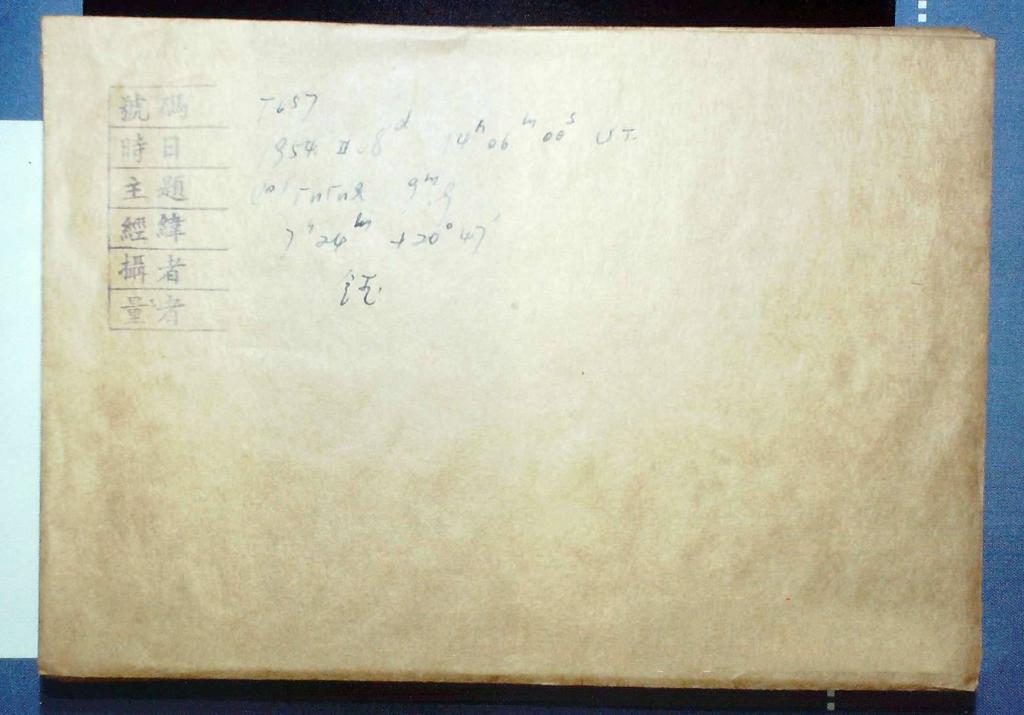 號碼 T657
時日 1954 II 08ᵈ 14ʰ06ᵐ00ˢ UT.
主題 9ᵐ.9
經緯 7ʰ24ᵐ +20°47′
攝者
量者